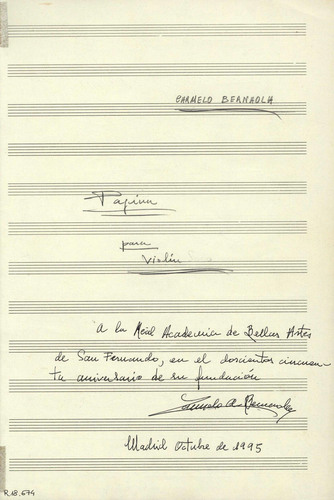 CARMELO BERNAOLA
Página
para
Violín
A la Real Academia de Bellas Artes
de San Fernando, en el doscientos cincuen-
ta aniversario de su fundación
Carmelo A. Bernaola
Madrid Octubre de 1995
R.18.674